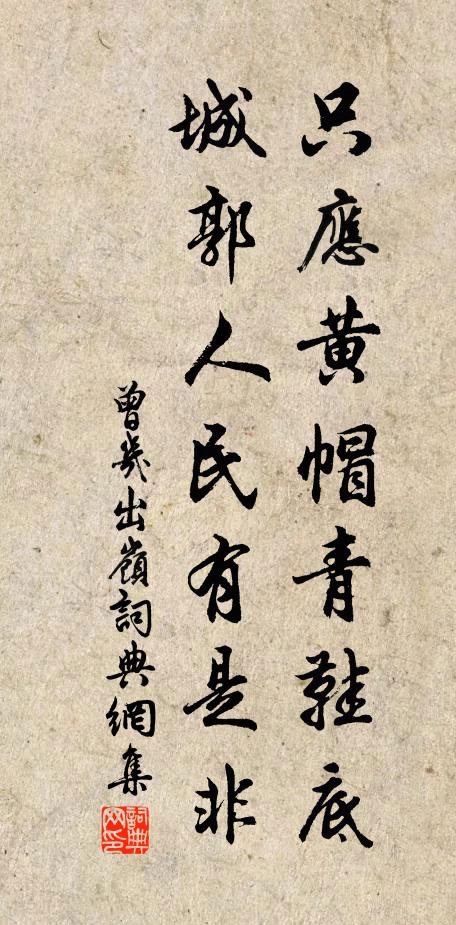 只應黃帽青鞋底
城郭人民有是非
曾幾出嶺詞典網集
詞典網印